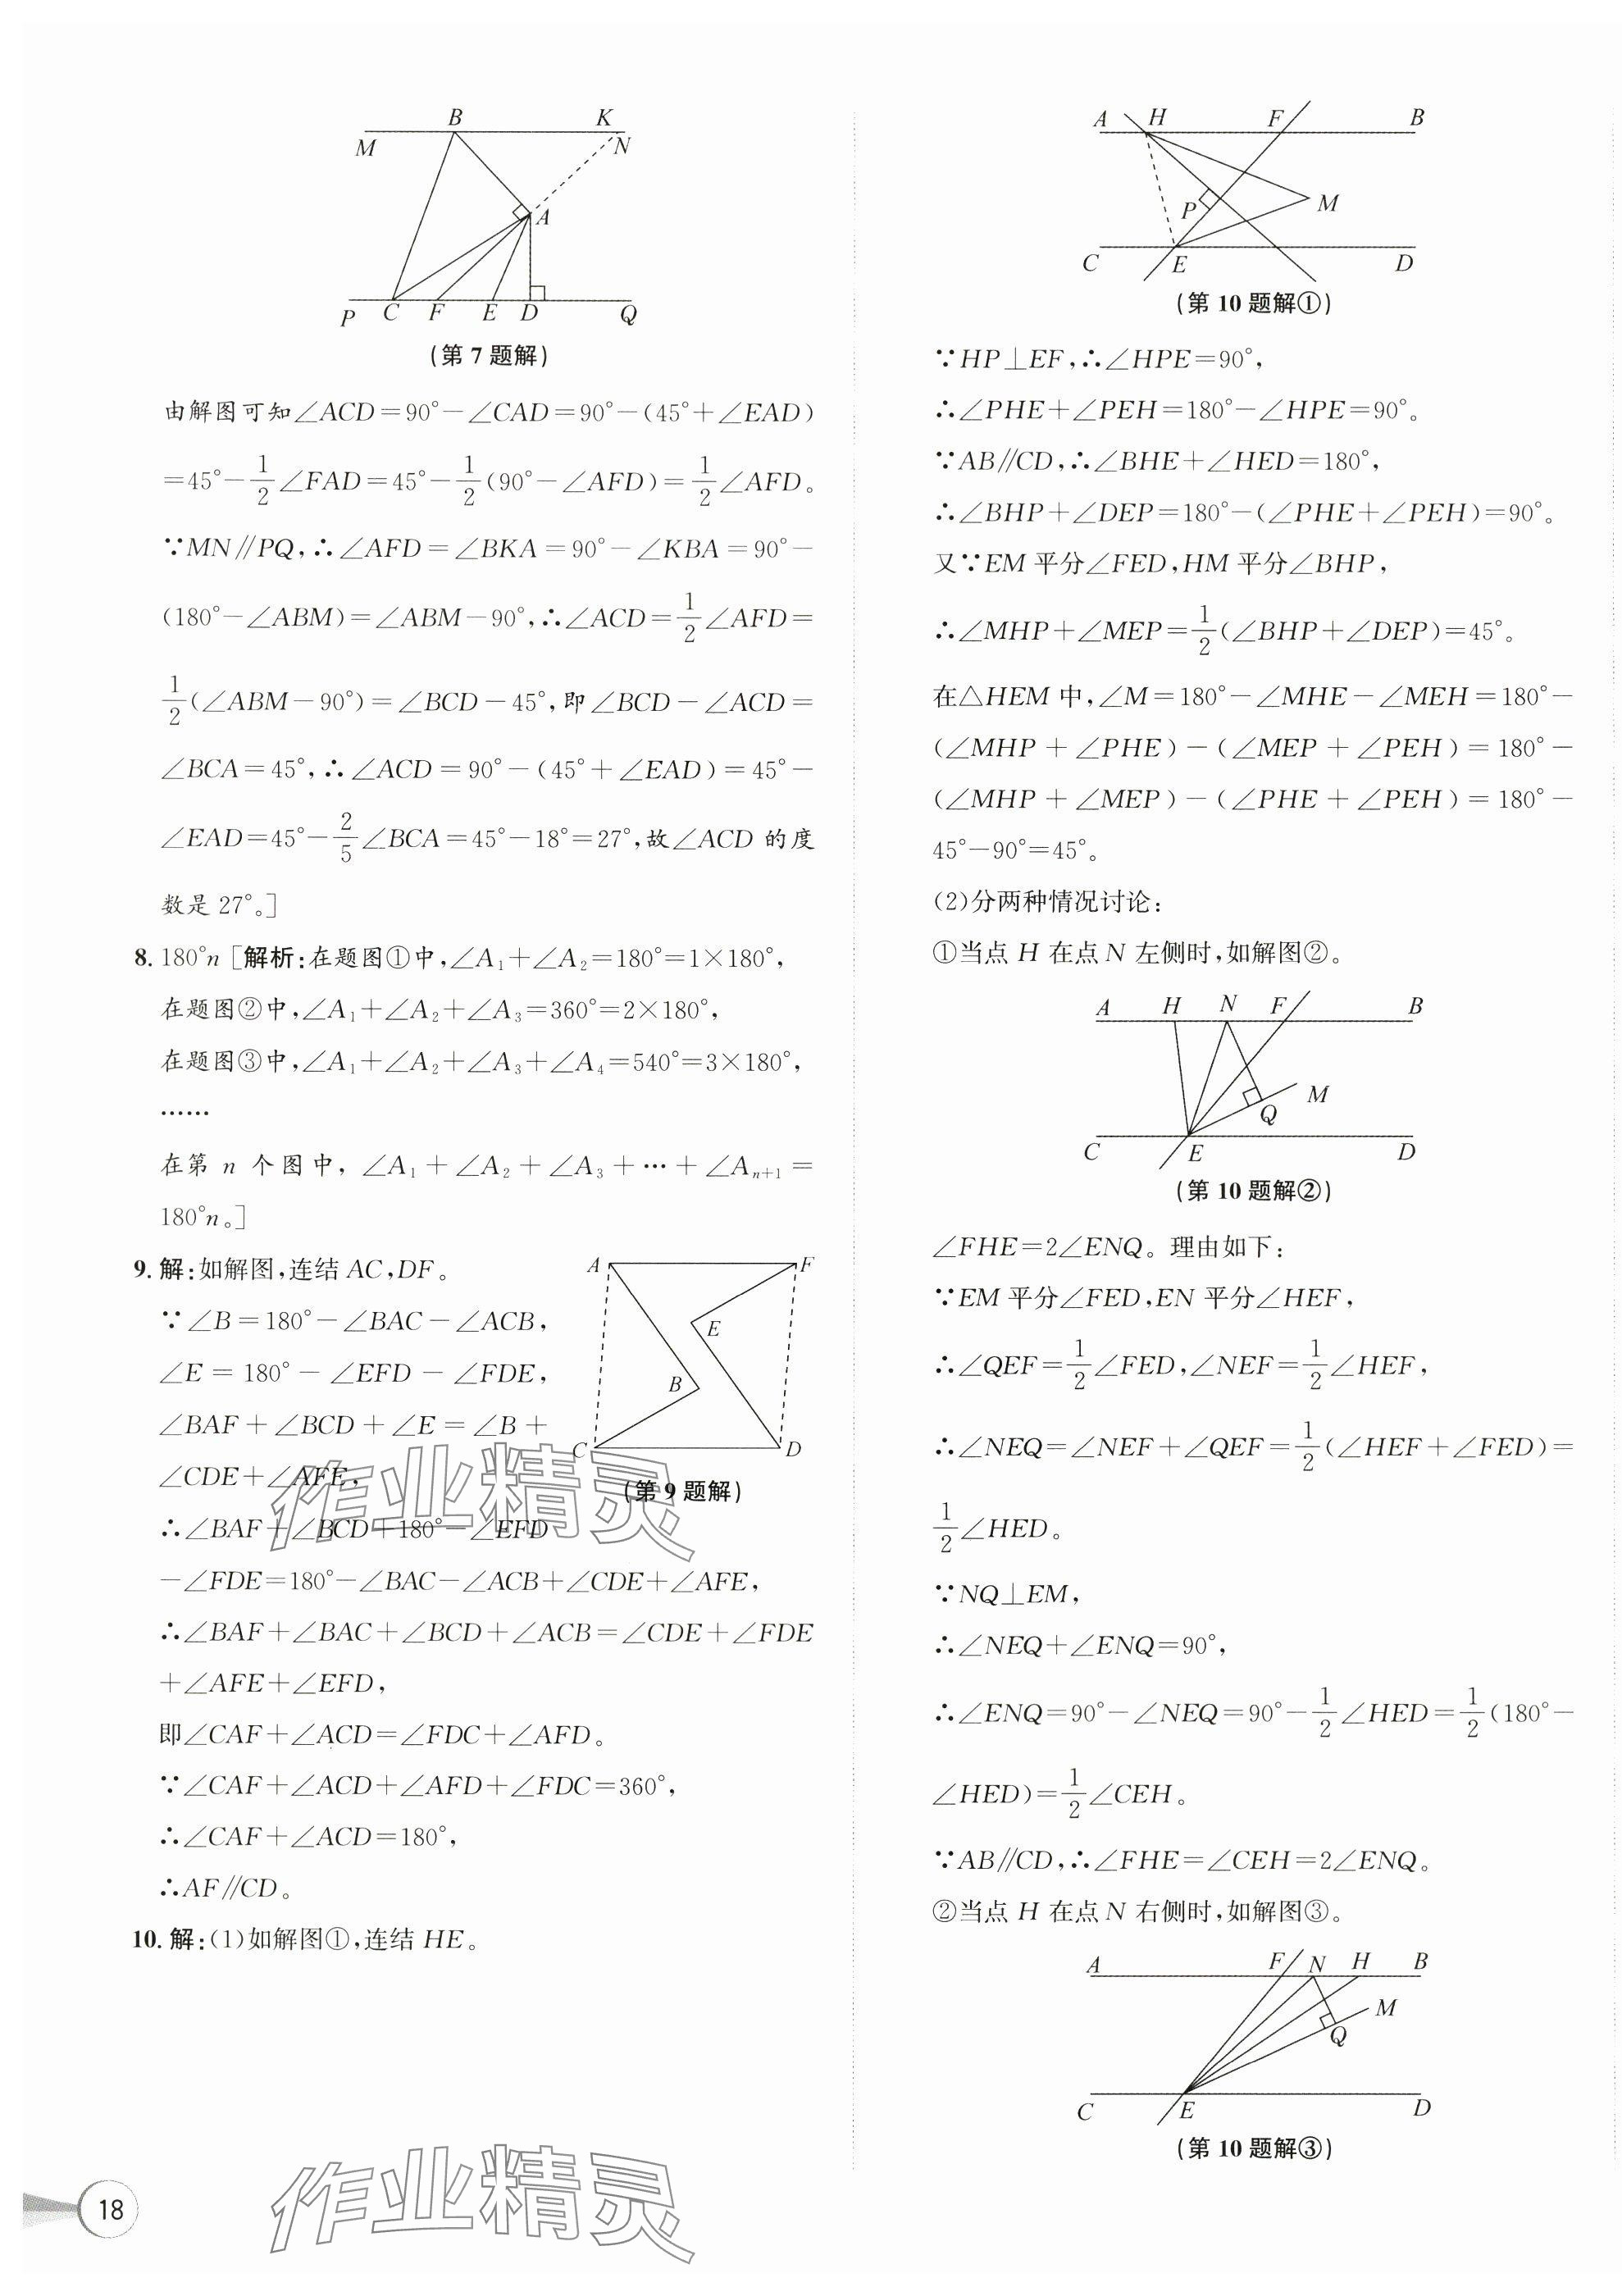 B K
M N
A
P C F E D Q
(第 7 题解)
由解图可知∠ACD=90°-∠CAD=90°-(45°+∠EAD)
=45°-1/2∠FAD=45°-1/2(90°-∠AFD)=1/2∠AFD。
∵MN∥PQ,∴∠AFD=∠BKA=90°-∠KBA=90°-
(180°-∠ABM)=∠ABM-90°,∴∠ACD=1/2∠AFD=
1/2(∠ABM-90°)=∠BCD-45°,即∠BCD-∠ACD=
∠BCA=45°,∴∠ACD=90°-(45°+∠EAD)=45°-
∠EAD=45°-2/5∠BCA=45°-18°=27°,故∠ACD 的度
数是 27°。]
8. 180°n [解析:在题图①中,∠A₁+∠A₂=180°=1×180°,
在题图②中,∠A₁+∠A₂+∠A₃=360°=2×180°,
在题图③中,∠A₁+∠A₂+∠A₃+∠A₄=540°=3×180°,
……
在第 n 个图中, ∠A₁+∠A₂+∠A₃+…+∠Aₙ₊₁=
180°n。]
9. 解:如解图,连结 AC,DF。
∵∠B=180°-∠BAC-∠ACB,
∠E=180°-∠EFD-∠FDE,
∠BAF+∠BCD+∠E=∠B+
∠CDE+∠AFE,
A F
E
B
C D
(第 9 题解)
∴∠BAF+∠BCD+180°-∠EFD
-∠FDE=180°-∠BAC-∠ACB+∠CDE+∠AFE,
∴∠BAF+∠BAC+∠BCD+∠ACB=∠CDE+∠FDE
+∠AFE+∠EFD,
即∠CAF+∠ACD=∠FDC+∠AFD。
∵∠CAF+∠ACD+∠AFD+∠FDC=360°,
∴∠CAF+∠ACD=180°,
∴AF∥CD。
10. 解:(1)如解图①,连结 HE。
作业精灵
作业精灵
18
A H F B
P M
C E D
(第 10 题解①)
∵HP⊥EF,∴∠HPE=90°,
∴∠PHE+∠PEH=180°-∠HPE=90°。
∵AB∥CD,∴∠BHE+∠HED=180°,
∴∠BHP+∠DEP=180°-(∠PHE+∠PEH)=90°。
又∵EM 平分∠FED,HM 平分∠BHP,
∴∠MHP+∠MEP=1/2(∠BHP+∠DEP)=45°。
在△HEM 中,∠M=180°-∠MHE-∠MEH=180°-
(∠MHP+∠PHE)-(∠MEP+∠PEH)=180°-
(∠MHP+∠MEP)-(∠PHE+∠PEH)=180°-
45°-90°=45°。
(2)分两种情况讨论:
①当点 H 在点 N 左侧时,如解图②。
A H N F B
M
Q
C E D
(第 10 题解②)
∠FHE=2∠ENQ。理由如下:
∵EM 平分∠FED,EN 平分∠HEF,
∴∠QEF=1/2∠FED,∠NEF=1/2∠HEF,
∴∠NEQ=∠NEF+∠QEF=1/2(∠HEF+∠FED)=
1/2∠HED。
∵NQ⊥EM,
∴∠NEQ+∠ENQ=90°,
∴∠ENQ=90°-∠NEQ=90°-1/2∠HED=1/2(180°-
∠HED)=1/2∠CEH。
∵AB∥CD,∴∠FHE=∠CEH=2∠ENQ。
②当点 H 在点 N 右侧时,如解图③。
A F N H B
M
Q
C E D
(第 10 题解③)